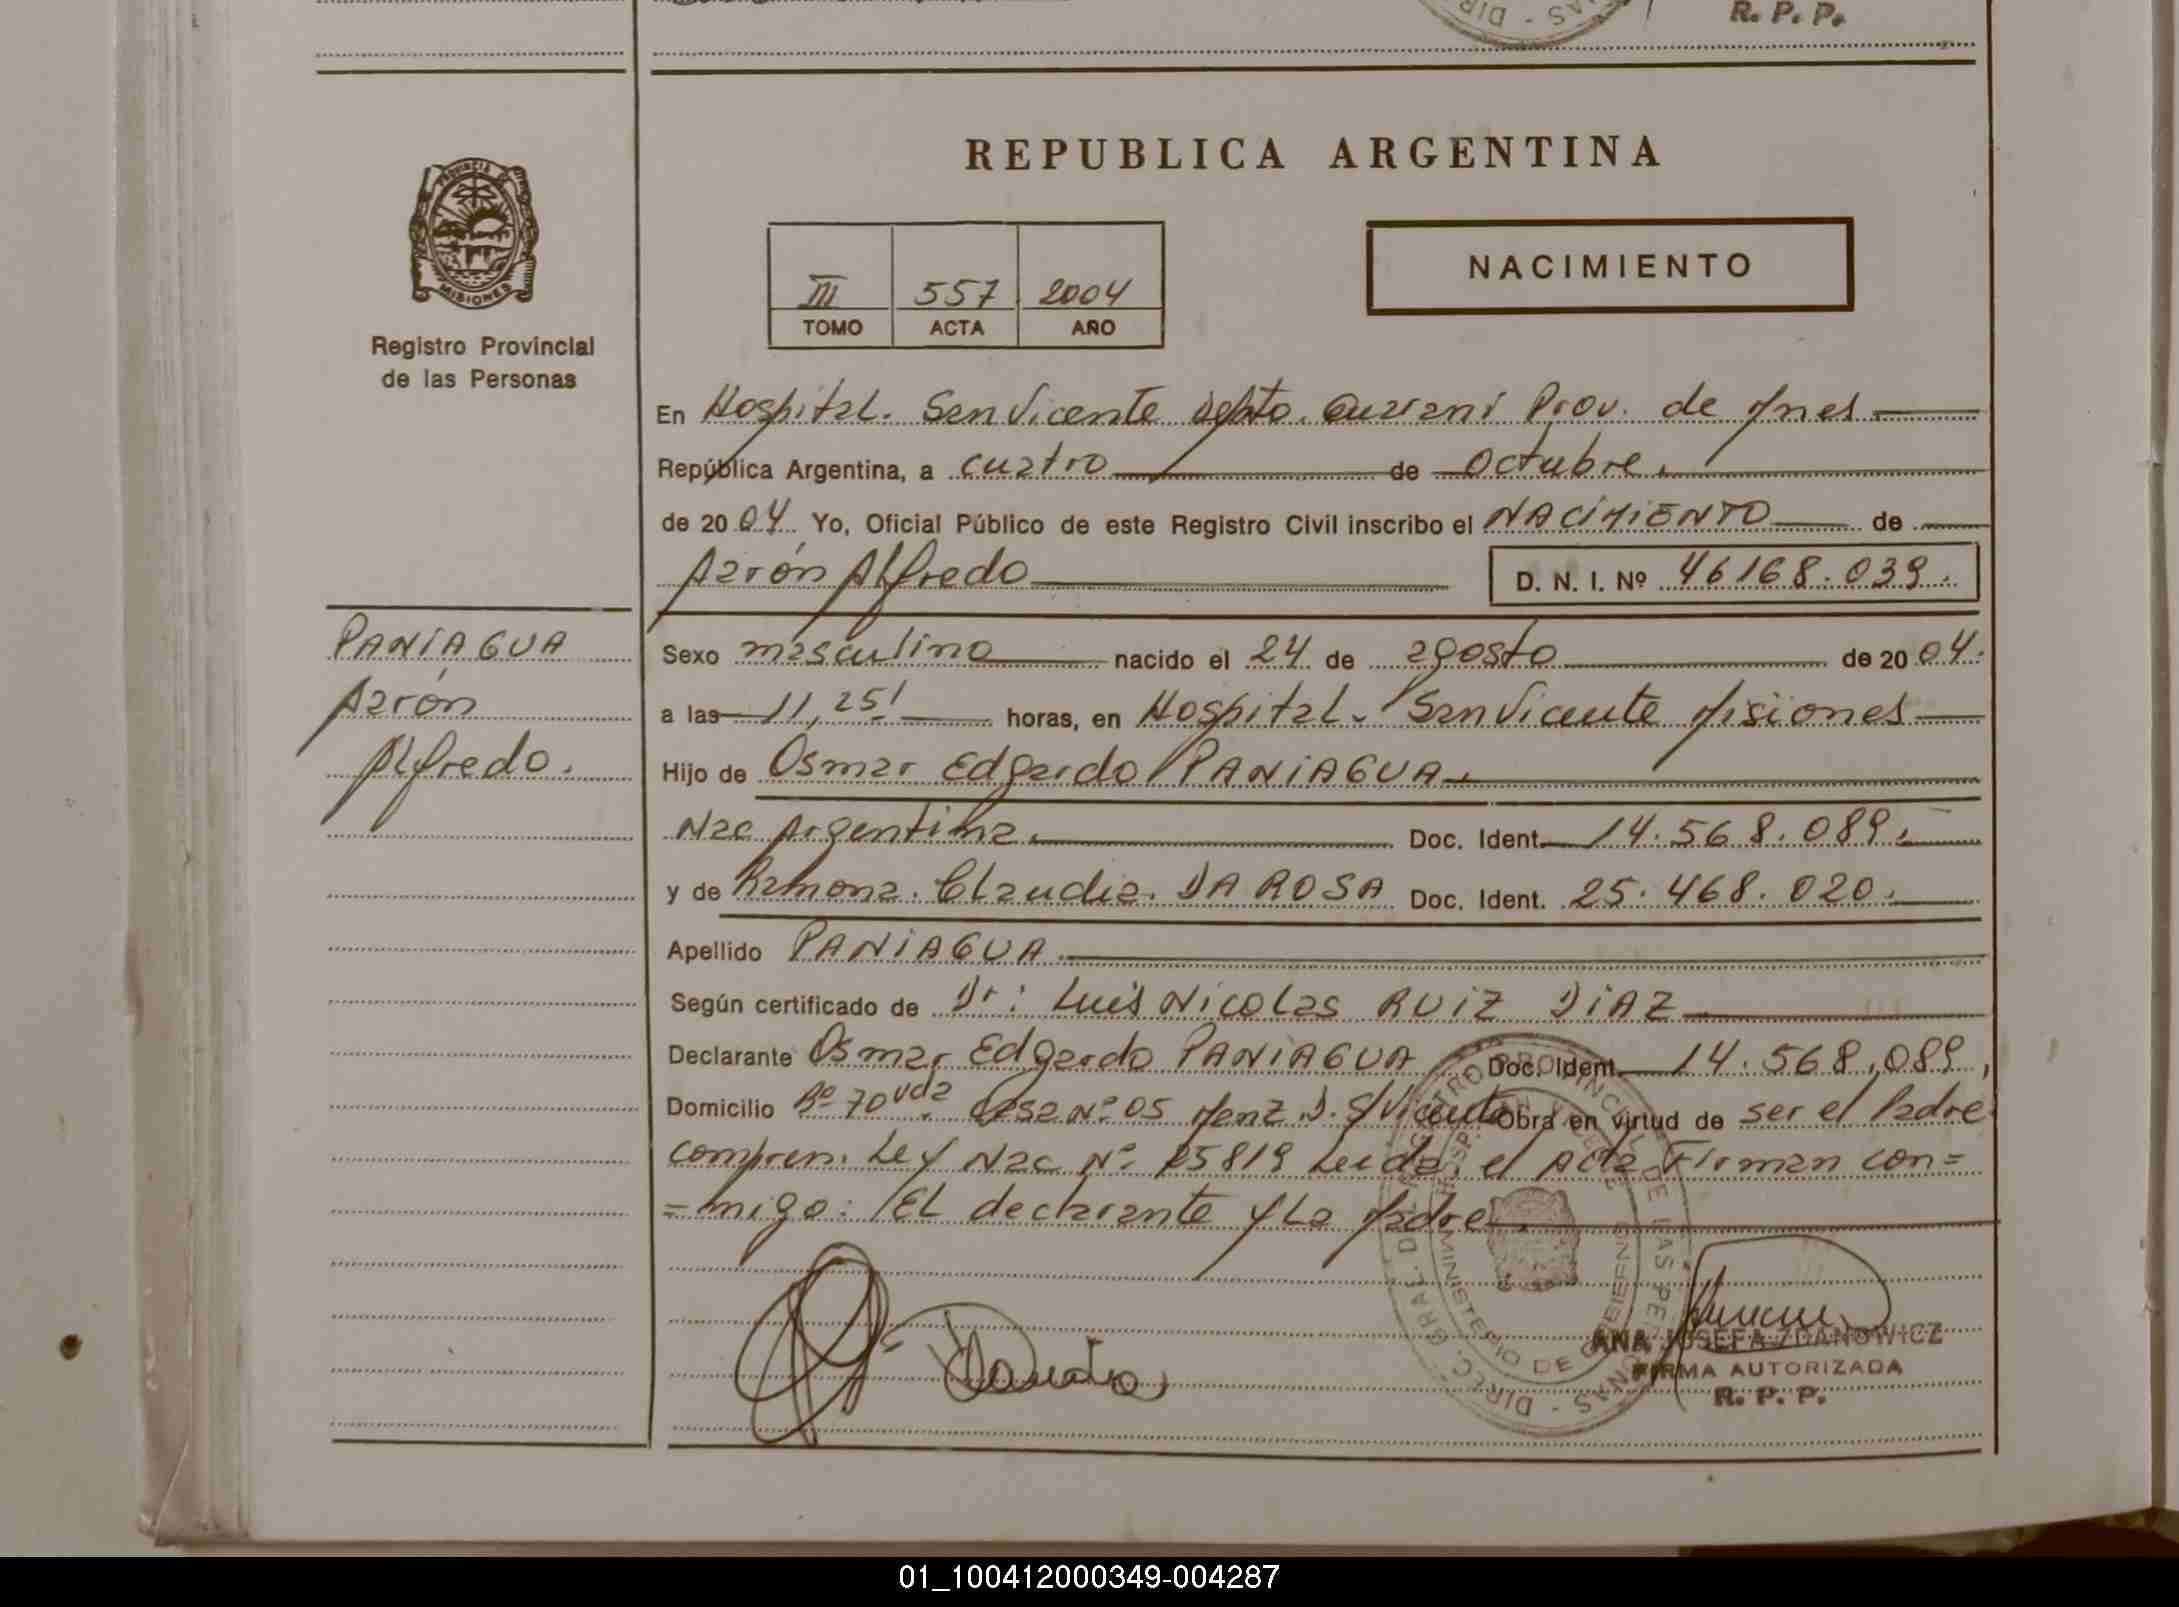 DIR - AS
R. P. P.
REPUBLICA ARGENTINA
PROVINCIA DE
MISIONES
Registro Provincial
de las Personas
III 557 2004
TOMO ACTA AÑO
NACIMIENTO
En Hospital. San Vicente Dpto. Guarani Prov. de Mnes
República Argentina, a cuatro de octubre.
de 2004 Yo, Oficial Público de este Registro Civil inscribo el NACIMIENTO de
Aarón Alfredo D. N. I. Nº 46168.039.
PANIAGUA
Aarón
Alfredo.
Sexo masculino nacido el 24 de agosto de 2004.
a las 11,25' horas, en Hospital. San Vicente Misiones
Hijo de Osmar Edgardo PANIAGUA.
Nac Argentina. Doc. Ident. 14.568.089.
y de Ramona. Claudia. DA ROSA Doc. Ident. 25.468.020.
Apellido PANIAGUA.
Según certificado de Dr: Luis Nicolas RUIZ DIAZ
Declarante Osmar Edgardo PANIAGUA Doc. Ident. 14.568.089,
Domicilio Bº 70 vda. Casa Nº 05 Manz. D. S/Vicente Obra en virtud de ser el Padre
compren. Ley Nac Nº 25819 Leida el Acta Firman con=
=migo: El declarante y La Madre.
DIREC. GRAL. DEL REGISTRO PROVINCIAL DE LAS PERSONAS -
MINISTERIO DE GOBIERNO
ANA JOSEFA ZDANOWICZ
FIRMA AUTORIZADA
R. P. P.
01_100412000349-004287